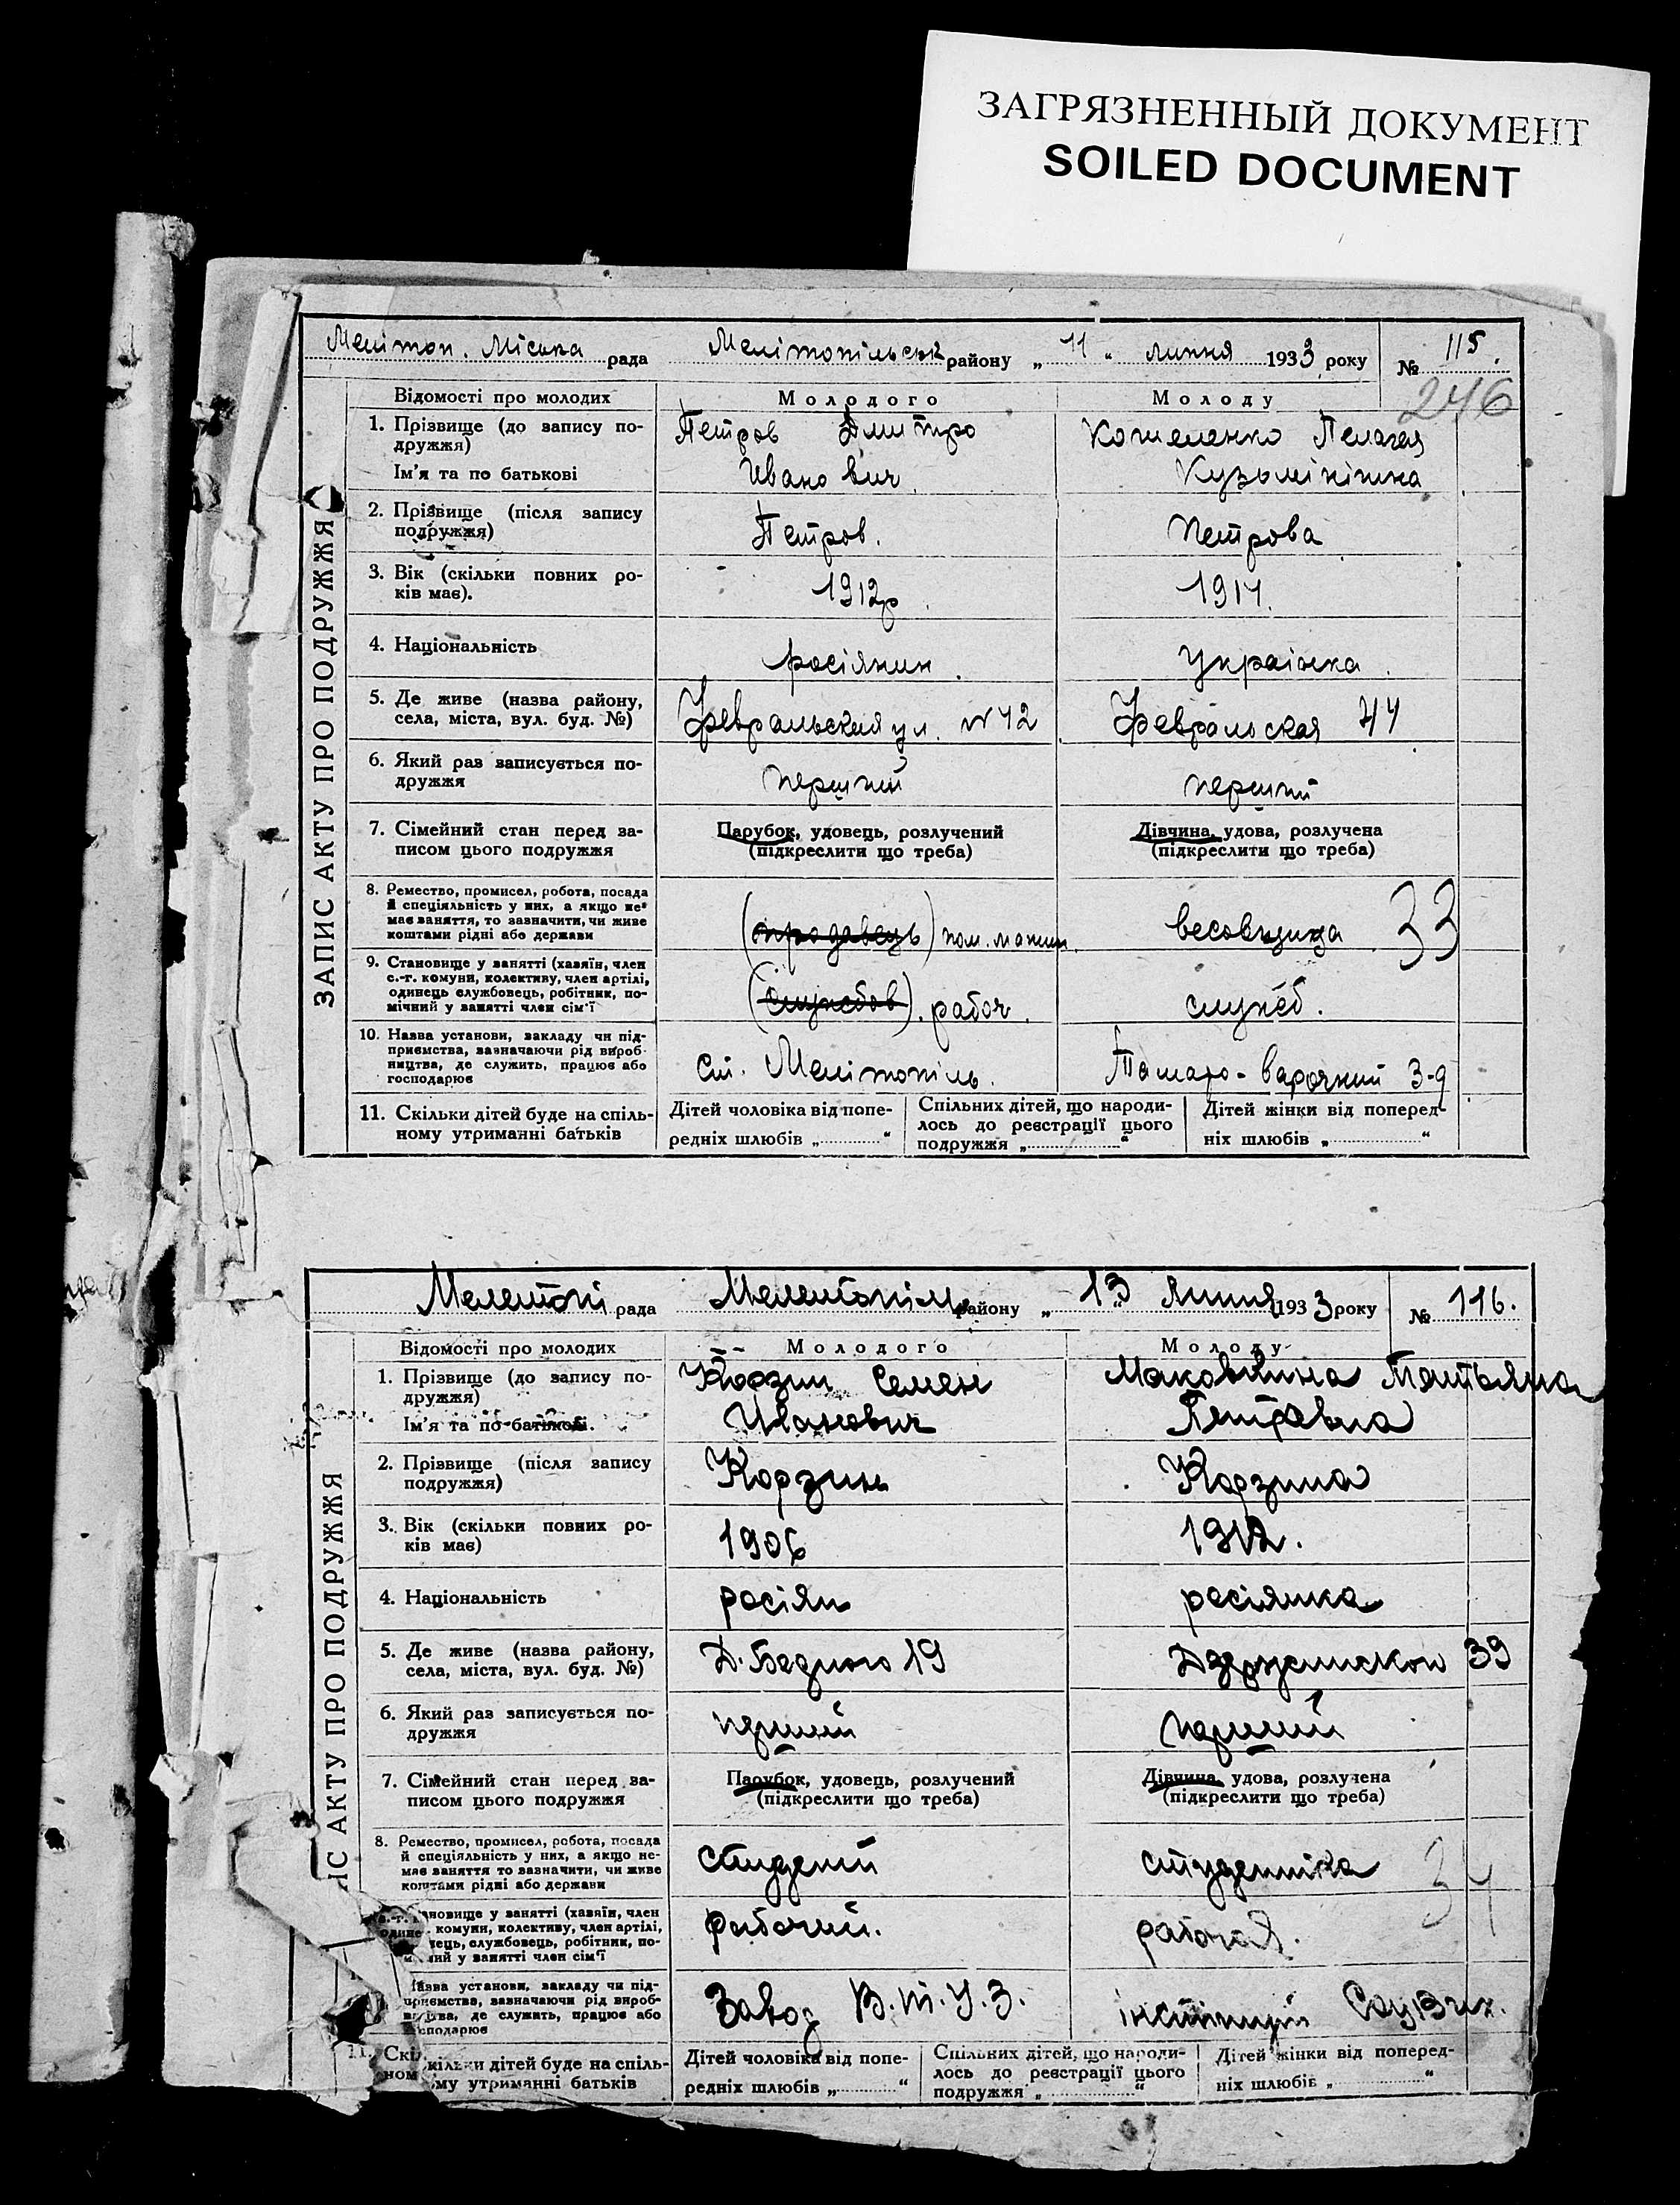 ЗАГРЯЗНЕННЫЙ ДОКУМЕНТ
SOILED DOCUMENT
Мелітоп. Міська рада Мелітопільськ району „ 11 " липня 1933 року № 115.
246
ЗАПИС АКТУ ПРО ПОДРУЖЖЯ
Відомості про молодих Молодого Молоду
1. Прізвище (до запису по- Петров Дмитро Пелагея
дружжя)
Ім'я та по батькові Иванович Кузьмінішна
2. Прізвище (після запису Петров. Петрова
подружжя)
3. Вік (скільки повних ро- 1912р 1914.
ків має).
4. Національність росіянин. Українка.
5. Де живе (назва району, Февральская ул. № 42 Февральская 44
села, міста, вул. буд. №)
6. Який раз записується по- перший перший
дружжя
7. Сімейний стан перед за- Парубок, удовець, розлучений Дівчина, удова, розлучена
писом цього подружжя (підкреслити що треба) (підкреслити що треба)
8. Ремество, промисел, робота, посада
й спеціяльність у них, а якщо не-
має заняття, то зазначити, чи живе (продавець) пом. машин. весовщица 33
коштами рідні або держави
9. Становище у занятті (хазяїн, член
с.-г. комуни, колективу, член артілі,
одинець службовець, робітник, по- (службов). рабоч. служб.
мічний у занятті член сім'ї
10. Назва установи, закладу чи під-
приємства, зазначаючи рід вироб-
ництва, де служить, працює або Ст. Мелітопіль. Томато-варочний з-д
господарює
11. Скільки дітей буде на спіль- Дітей чоловіка від попе- Спільних дітей, що народи- Дітей жінки від поперед-
ному утриманні батьків редніх шлюбів „ " лось до реєстрації цього ніх шлюбів „ "
подружжя „ "
Мелетопі рада Мелетопіль району „ 13 " липня 1933 року № 116.
НС АКТУ ПРО ПОДРУЖЖЯ
Відомості про молодих Молодого Молоду
1. Прізвище (до запису по- Корзин Семен Татьяна
дружжя)
Ім'я та по батькові. Иванович Петровна
2. Прізвище (після запису Корзин Корзина
подружжя)
3. Вік (скільки повних ро- 1906 1912.
ків має)
4. Національність росіян росіянка
5. Де живе (назва району, Д. Бедного 19 Дзержинской 39
села, міста, вул. буд. №)
6. Який раз записується по- перший перший
дружжя
7. Сімейний стан перед за- Парубок, удовець, розлучений Дівчина, удова, розлучена
писом цього подружжя (підкреслити що треба) (підкреслити що треба)
8. Ремество, промисел, робота, посада
й спеціяльність у них, а якщо не- студент студентка 34
має заняття то зазначити, чи живе
коштами рідні або держави
ановище у занятті (хазяїн, член
комуни, колективу, член артілі, рабочий. рабочая.
нець, службовець, робітник, по-
ний у занятті член сім'ї
Назва установи, закладу чи під-
приємства, зазначаючи рід вироб- Завод В.т.у.з. інститут
ництва, де служить, працює або
господарює
11. Скільки дітей буде на спіль- Дітей чоловіка від попе- Спільних дітей, що народи- Дітей жінки від поперед-
ному утриманні батьків редніх шлюбів „ " лось до реєстрації цього ніх шлюбів „ "
подружжя „ "